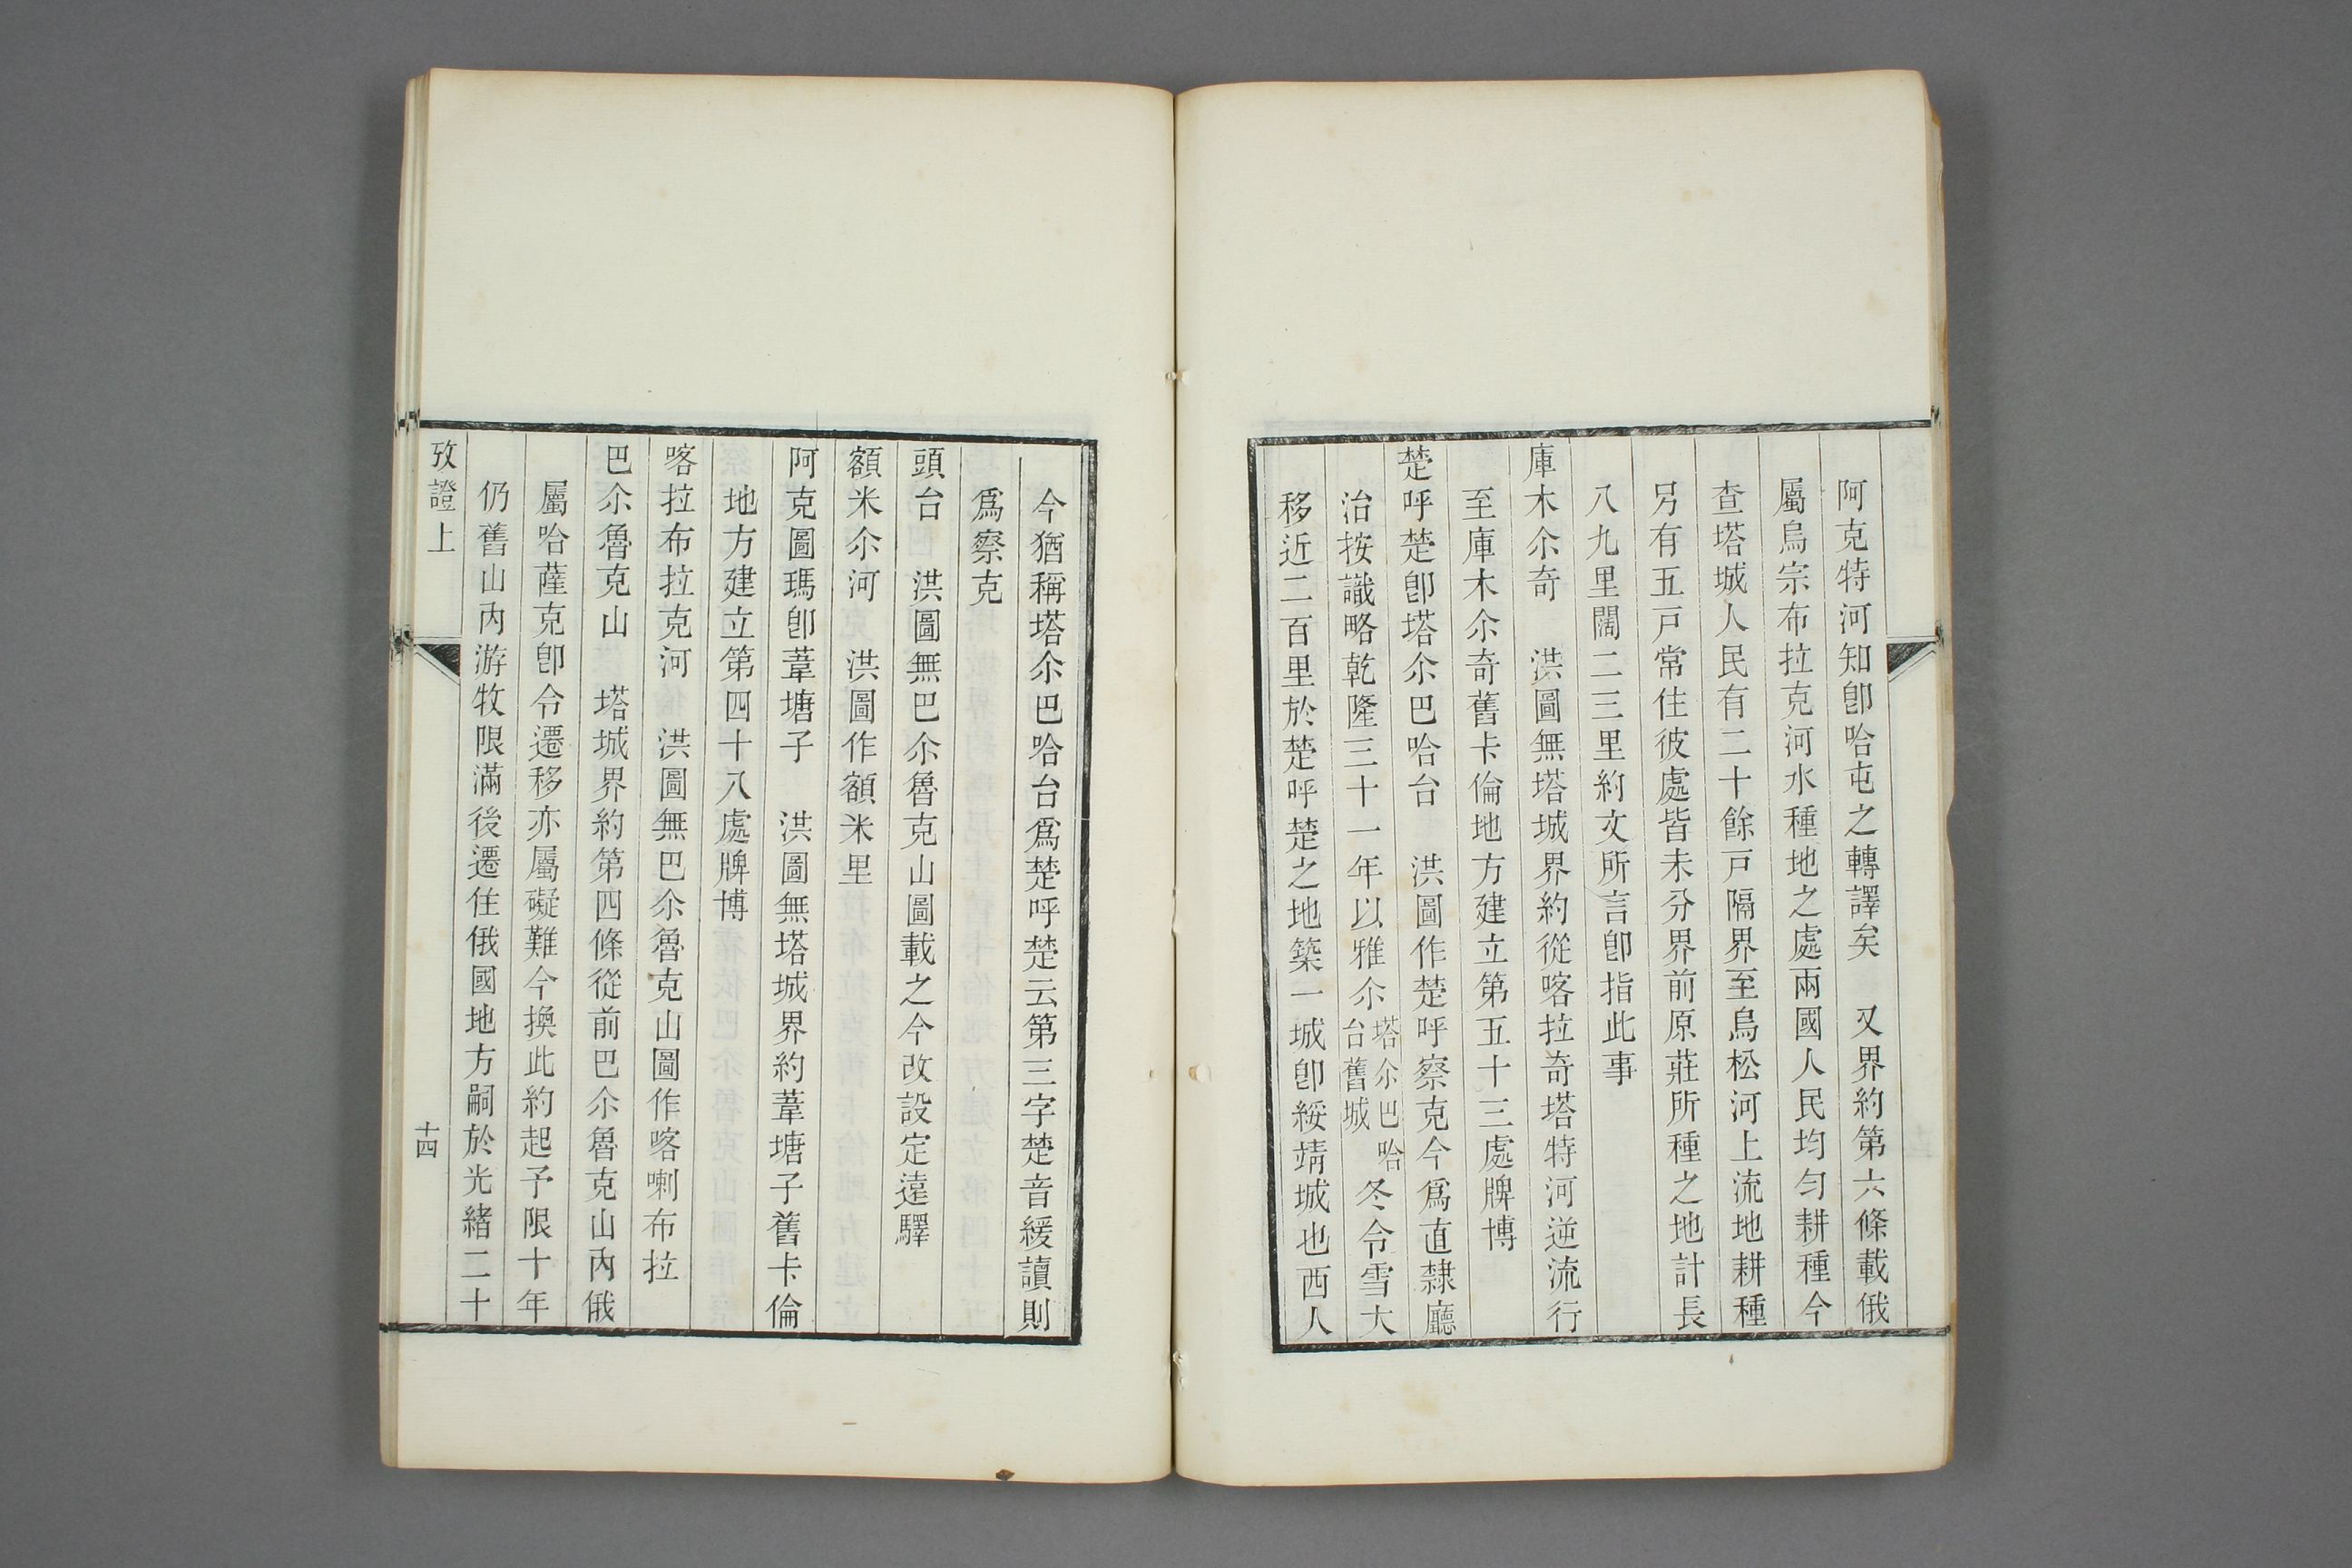 阿克特河知卽哈屯之轉譯矣　又界約第六條載俄
屬烏宗布拉克河水種地之處兩國人民均勻耕種今
查塔城人民有二十餘戸隔界至烏松河上流地耕種
另有五戸常住彼處皆未分界前原莊所種之地計長
八九里闊二三里約文所言卽指此事
庫木尒奇　洪圖無塔城界約從喀拉奇塔特河逆流行
至庫木尒奇舊卡倫地方建立第五十三處牌博
楚呼楚卽塔尒巴哈台　洪圖作楚呼察克今爲直隸廳
治按識略乾隆三十一年以雅尒塔尒巴哈台舊城冬令雪大
移近二百里於楚呼楚之地築一城卽綏靖城也西人
今猶稱塔尒巴哈台爲楚呼楚云第三字楚音緩讀則
爲察克
頭台　洪圖無巴尒魯克山圖載之今改設定遠驛
額米尒河　洪圖作額米里
阿克圖瑪卽葦塘子　洪圖無塔城界約葦塘子舊卡倫
地方建立第四十八處牌博
喀拉布拉克河　洪圖無巴尒魯克山圖作喀喇布拉
巴尒魯克山　塔城界約第四條從前巴尒魯克山內俄
屬哈薩克卽令遷移亦屬礙難今換此約起予限十年
仍舊山內游牧限滿後遷住俄國地方嗣於光緒二十
攷證上
十四